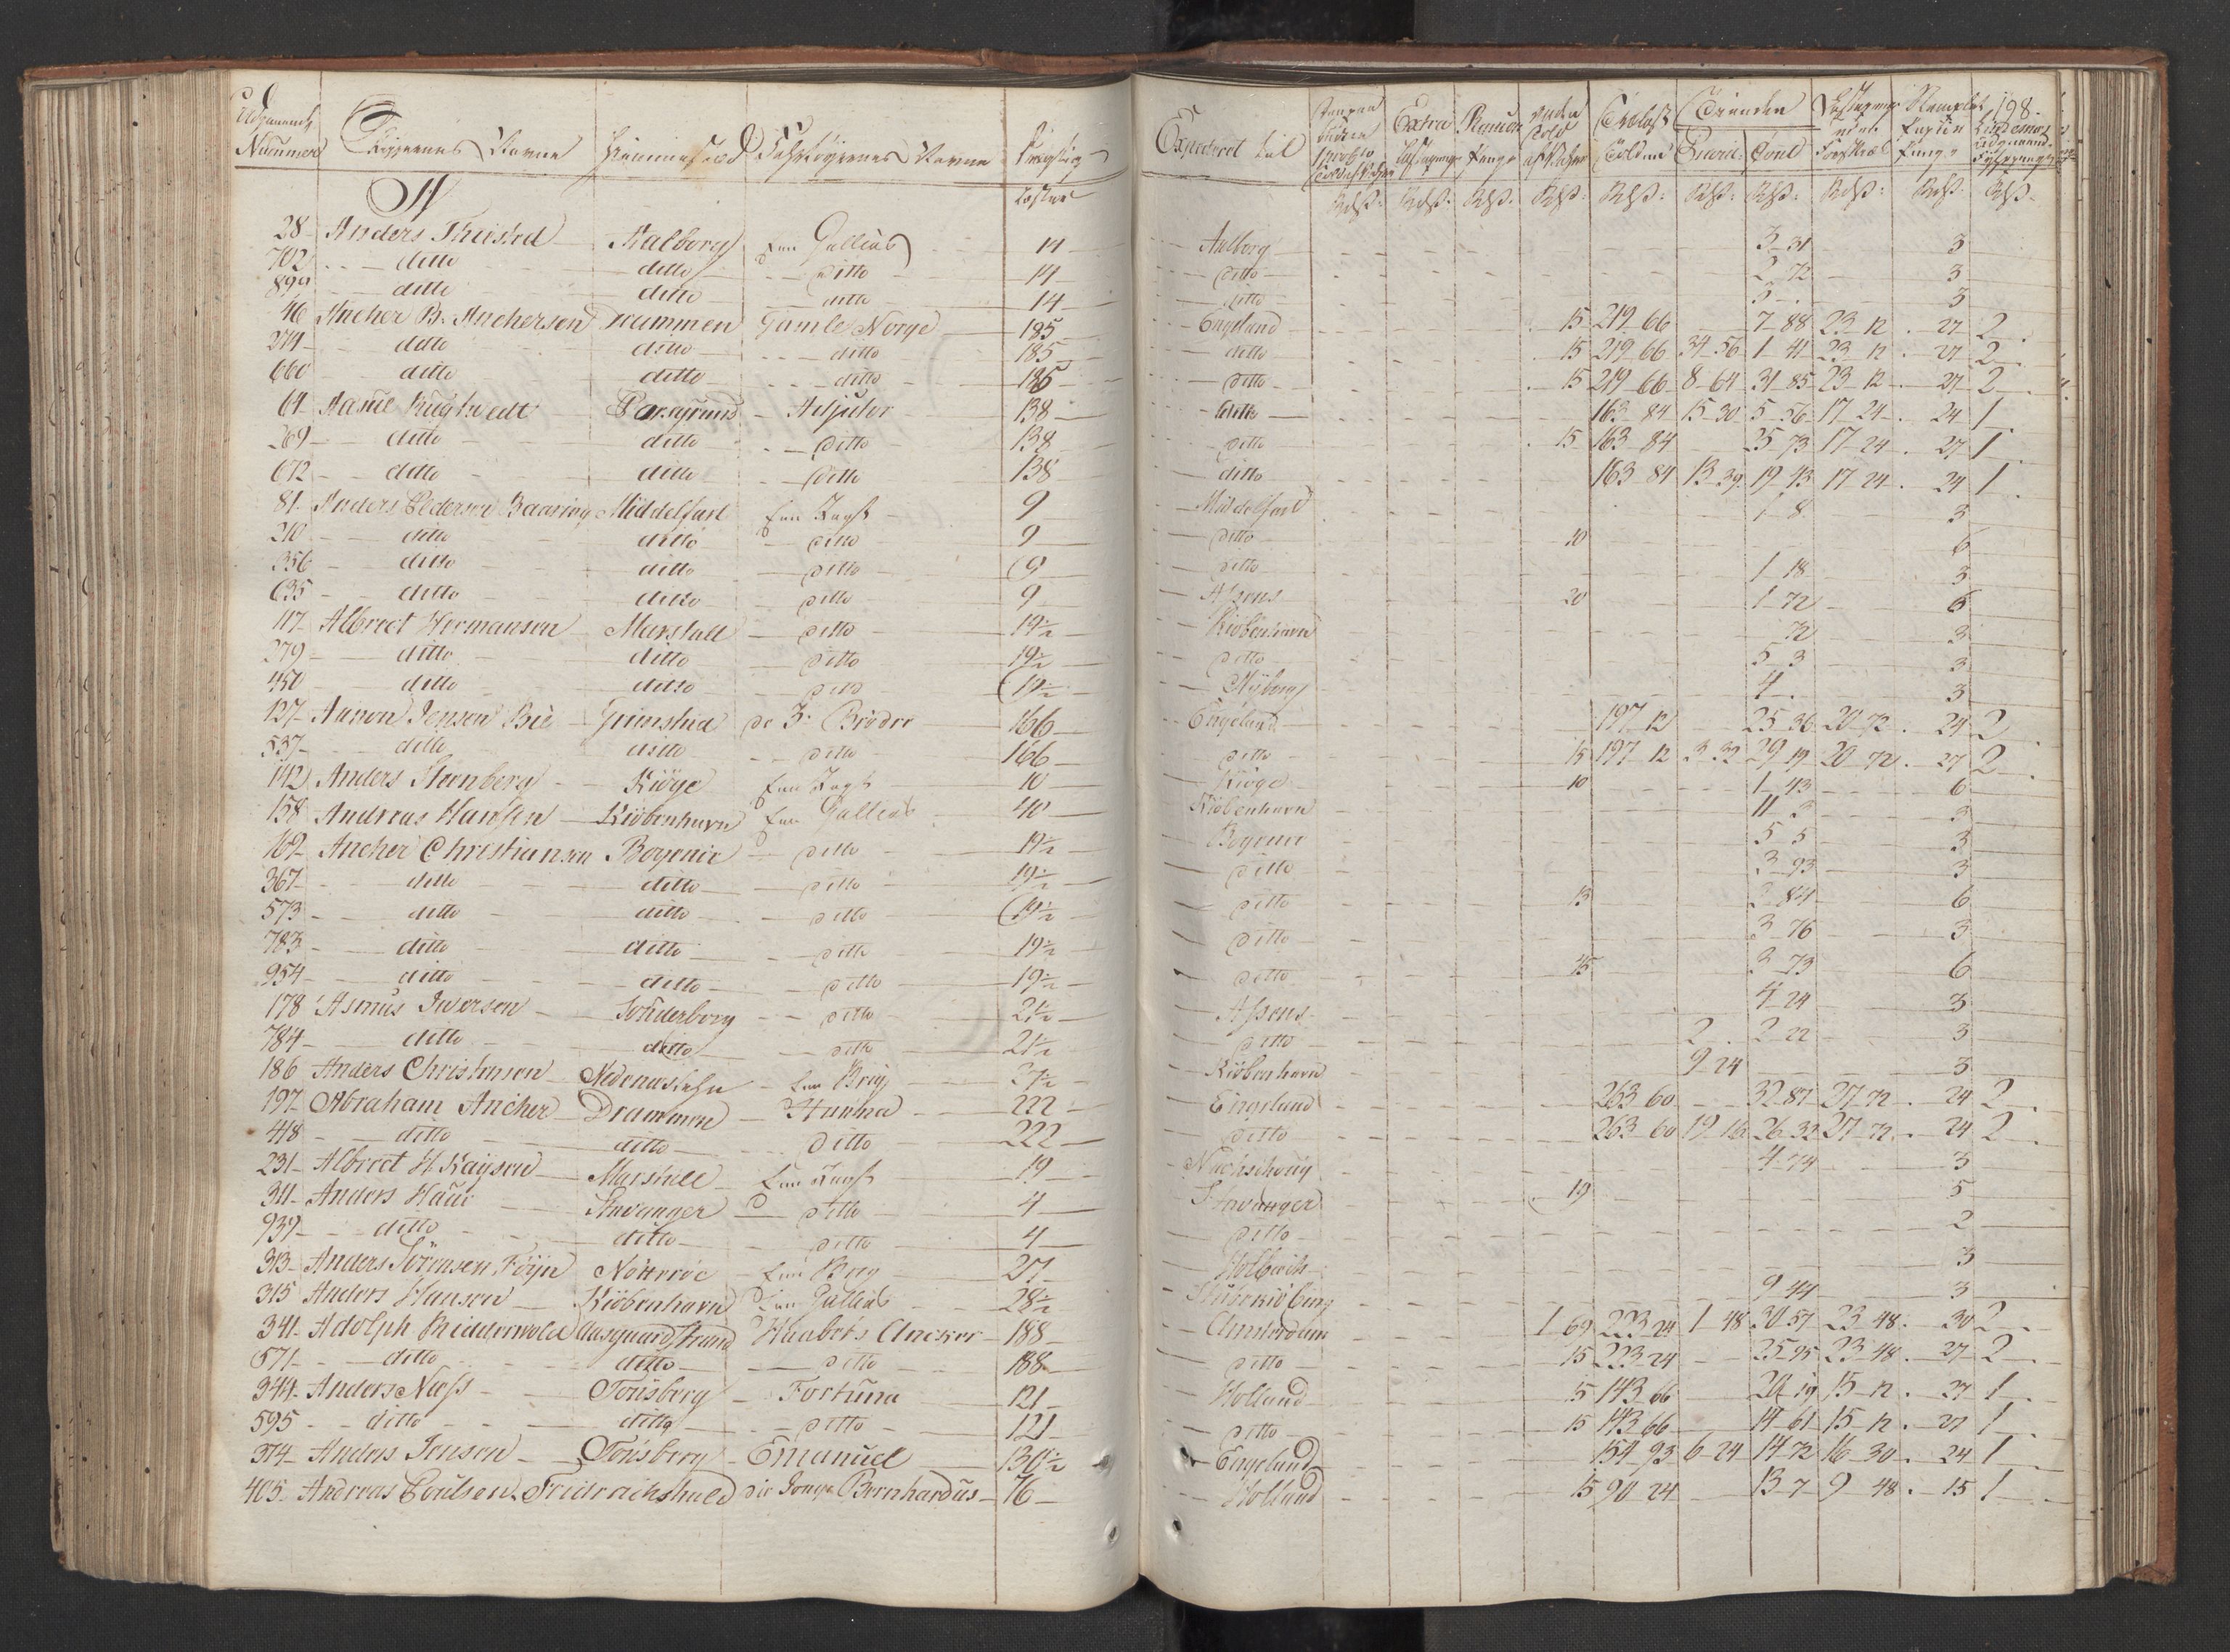 198.
Udgaaende Nummer | Skippernes Navne | Hiemmested | Fahrtöyernes Navne | Drægtig- Læster | Expederet til | Extra
A
28 Anders Thisted Aalborg Een Gallias 14 Aalborg 3 31 3
702 ditto ditto ditto 14 ditto 2 72 3
899 ditto ditto ditto 14 ditto 3 3
46 Ancher B. Anchersen Drammen Gamle Norge 185 Engeland 15 219 66 7 88 23 12 27 2
274 ditto ditto ditto 185 ditto 15 219 66 34 56 1 41 23 12 27 2
660 ditto ditto ditto 185 ditto 15 219 66 8 64 31 85 23 12 27 2
64 Aasue Porsgrund Adjutor 138 ditto 163 84 15 30 5 56 17 24 24 1
269 ditto ditto ditto 138 ditto 15 163 84 25 73 17 24 27 1
672 ditto ditto ditto 138 ditto 163 84 13 39 19 43 17 24 24 1
81 Anders Pedersen Baaring Middelfart Een Jagt 9 Middelfart 1 8 3
210 ditto ditto ditto 9 ditto 10 6
356 ditto ditto ditto 9 ditto 1 18 3
635 ditto ditto ditto 9 Assens 20 1 72 6
117 Albrect Hermansen Marstall ditto 19½ Kiöbenhavn 72 3
279 ditto ditto ditto 19½ ditto 5 3 3
450 ditto ditto ditto 19½ Nÿborg 4 3
137 Aanon Jensen Bie Grimstad de 3 Brödre 166 Engeland 197 12 25 36 20 72 24 2
537 ditto ditto ditto 166 ditto 15 197 12 3 32 29 19 20 72 27 2
142 Anders Steenberg Kiöge Een Jagt 10 Kiöge 10 1 43 6
158 Andreas Hansen Kiöbenhavn Een Gallias 40 Kiöbenhavn 11 3 3
169 Ancher Christiansen Bogense ditto 19½ Bogense 5 5 3
367 ditto ditto ditto 19½ ditto 3 93 3
573 ditto ditto ditto 19½ ditto 13 3 84 6
783 ditto ditto ditto 19½ ditto 3 76 3
954 ditto ditto ditto 19½ ditto 15 3 73 6
178 Asmus Iversen Sönderborg ditto 21½ Assens 4 24 3
784 ditto ditto ditto 21½ ditto 2 2 22 3
186 Anders Christensen Nedenæslehn Een Brig 37½ Kiöbenhavn 9 24 3
197 Abraham Ancher Drammen Hanna 222 Engeland 263 60 32 87 27 72 24 2
418 ditto ditto ditto 222 ditto 263 60 19 16 26 32 27 72 24 2
231 Albrect H. Kaÿsen Marstall Een Jagt 19 4 74 3
311 Anders Haue Stavanger ditto 4 Stavanger 19 5
939 ditto ditto ditto 4 ditto 2
313 Anders Sörensen Föÿn Nötteröe Een Brig 27 Holbech 3
315 Anders Hansen Kiöbenhavn Een Gallias 28½ 9 44 3
341 Adolph Ridderwold Aasgaardstrand Haabets Ancker 188 Amsterdam 1 69 223 24 1 48 30 57 23 48 30 2
571 ditto ditto ditto 188 ditto 15 223 24 25 95 23 48 27 2
344 Anders Næss Tönsberg Fortuna 121 Holland 15 143 66 20 19 15 12 27 1
595 ditto ditto ditto 121 ditto 15 143 66 14 61 15 12 27 1
374 Anders Jensen Tönsberg Emanuel 130½ Engeland 154 93 6 24 14 72 16 30 24 1
405 Andreas Poulsen Fridrichshald die Jonge Bernhardus 76 Holland 15 90 24 13 7 9 48 15 1